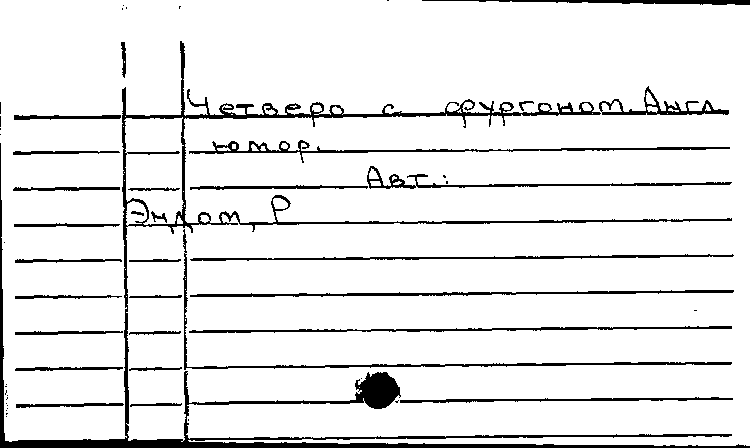 Четверо с фургоном. Англ
юмор.
Авт.:
Эндом, Р